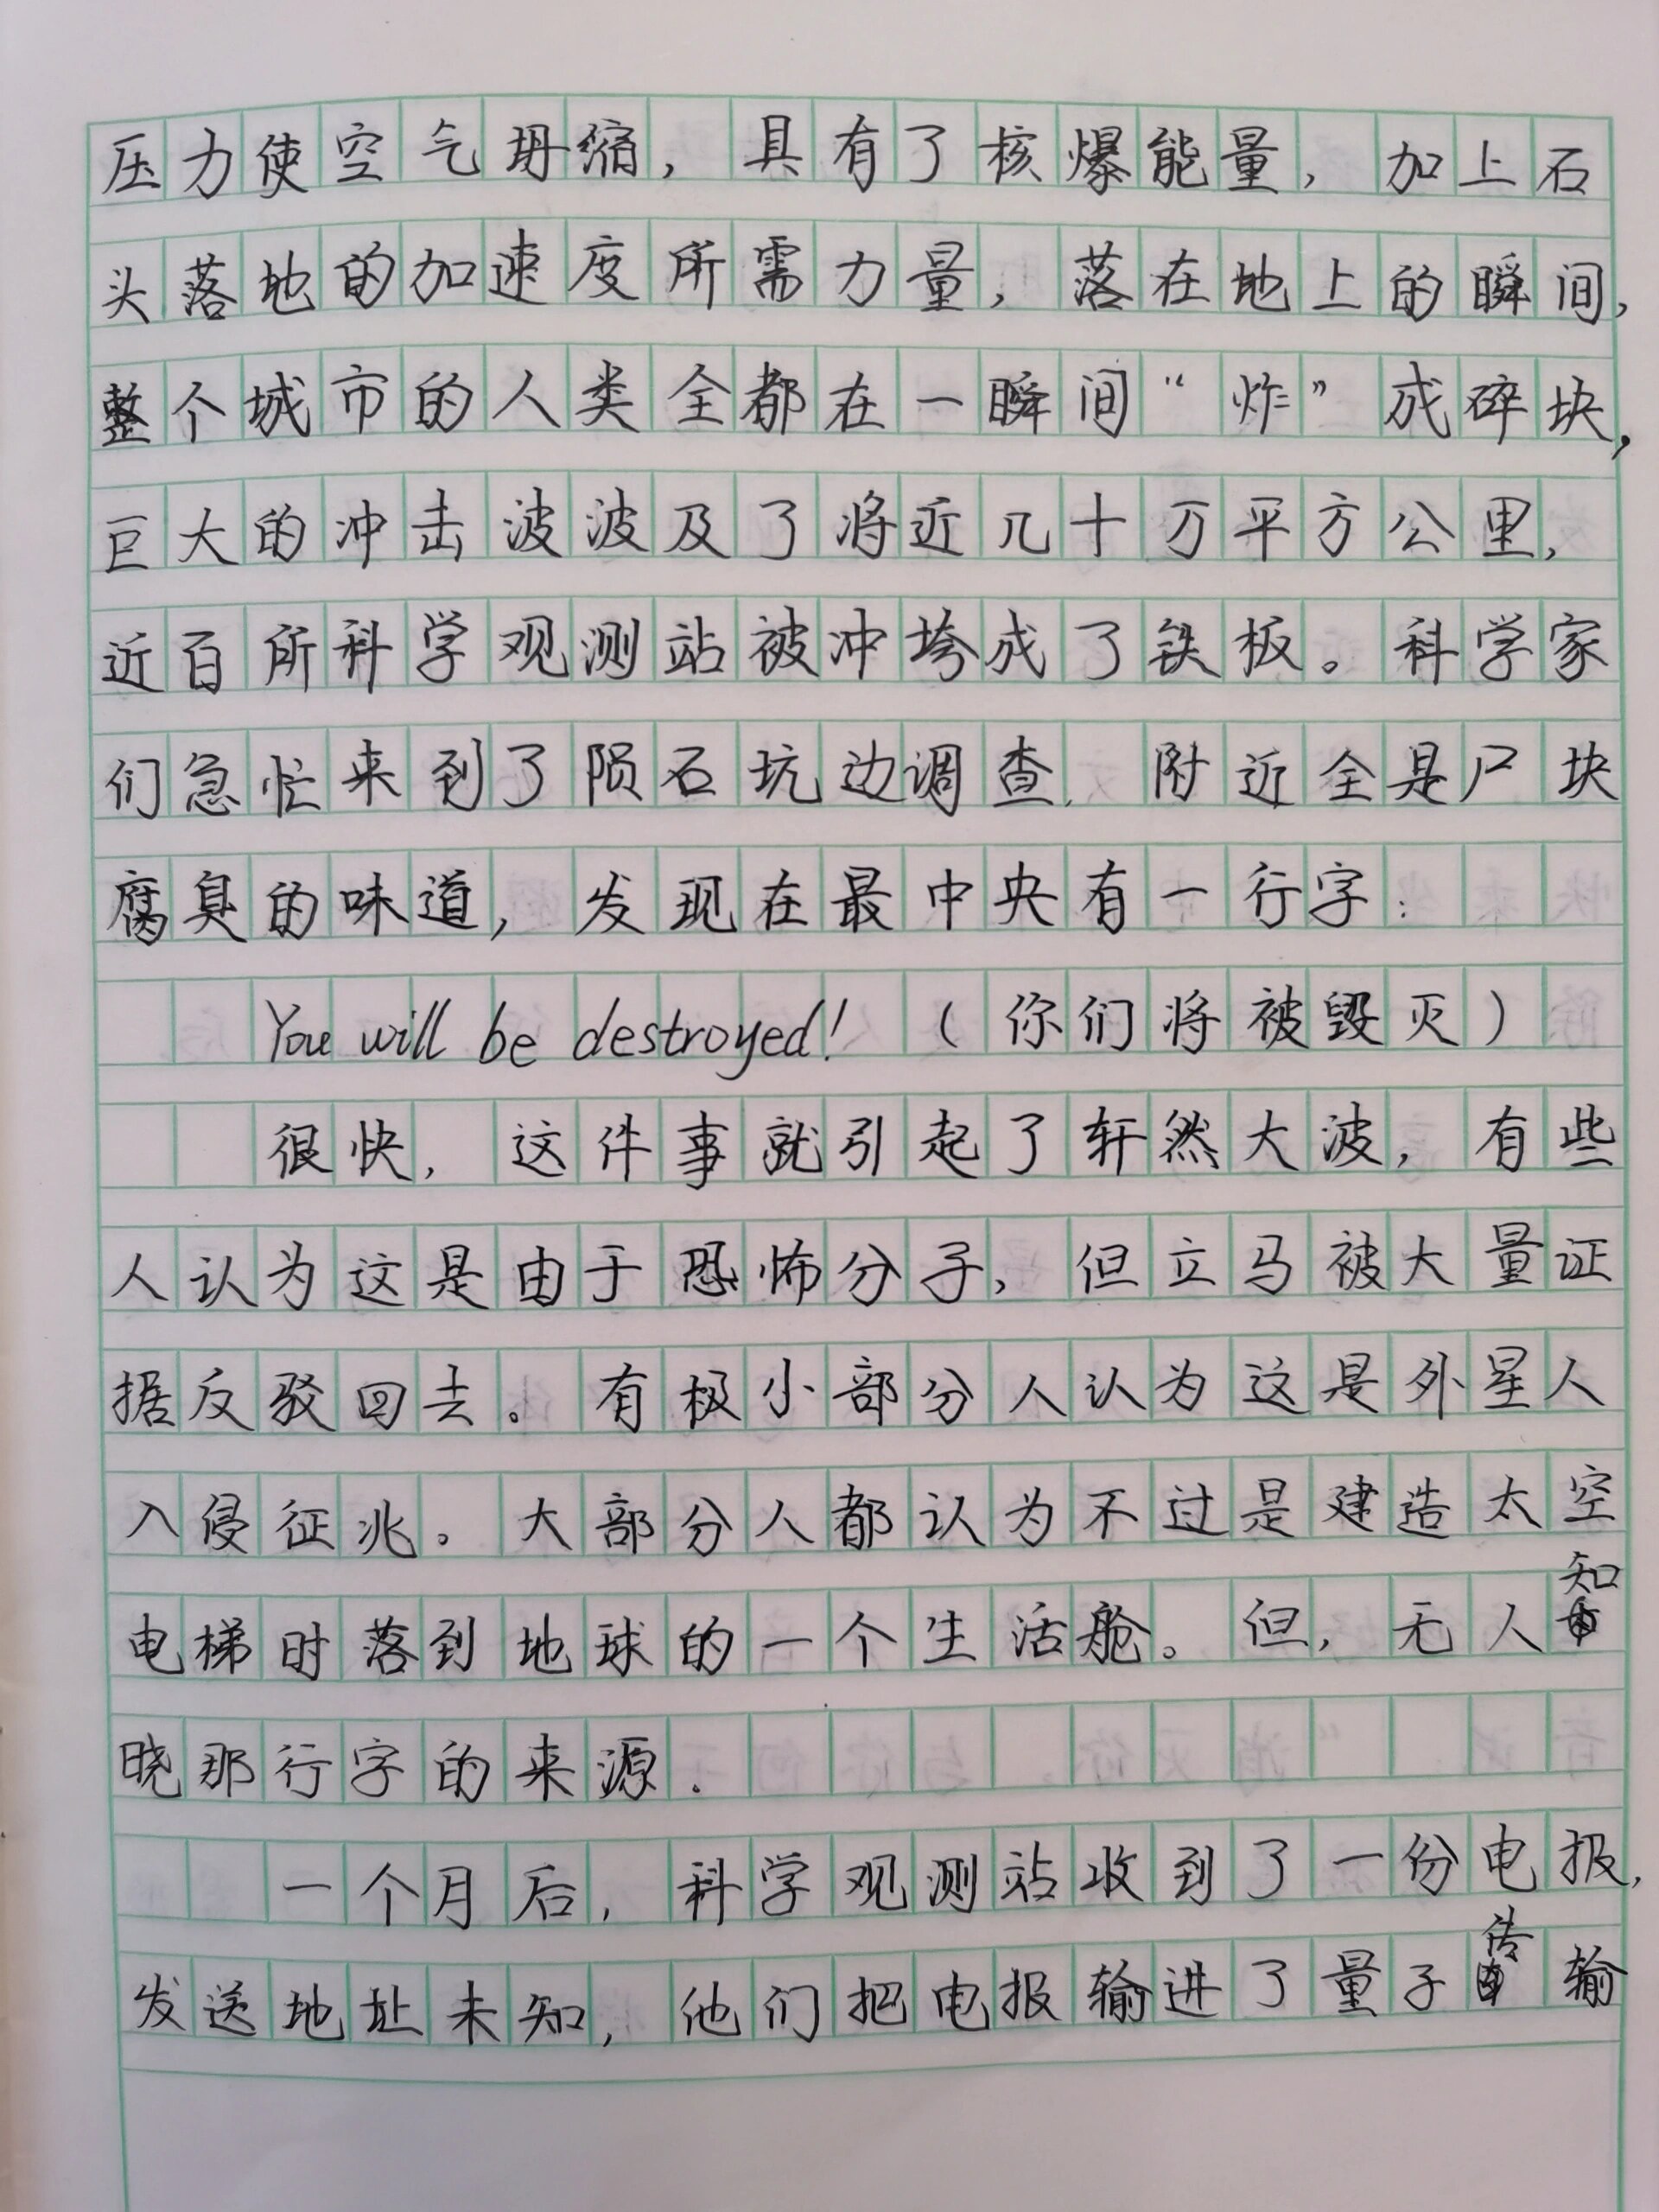 压力使空气坍缩，具有了核爆能量，加上石
头落地的加速度所需力量，落在地上的瞬间，
整个城市的人类全都在一瞬间“炸”成碎块，
巨大的冲击波波及了将近几十万平方公里，
近百所科学观测站被冲垮成了铁板。科学家
们急忙来到了陨石坑边调查，附近全是尸块
腐臭的味道，发现在最中央有一行字：
You will be destroyed!（你们将被毁灭）
很快，这件事就引起了轩然大波，有些
人认为这是由于恐怖分子，但立马被大量证
据反驳回去。有极小部分人认为这是外星人
入侵征兆。大部分人都认为不过是建造太空
电梯时落到地球的一个生活舱。但，无人知
晓那行字的来源。
一个月后，科学观测站收到了一份电报，
发送地址未知，他们把电报输进了量子传输